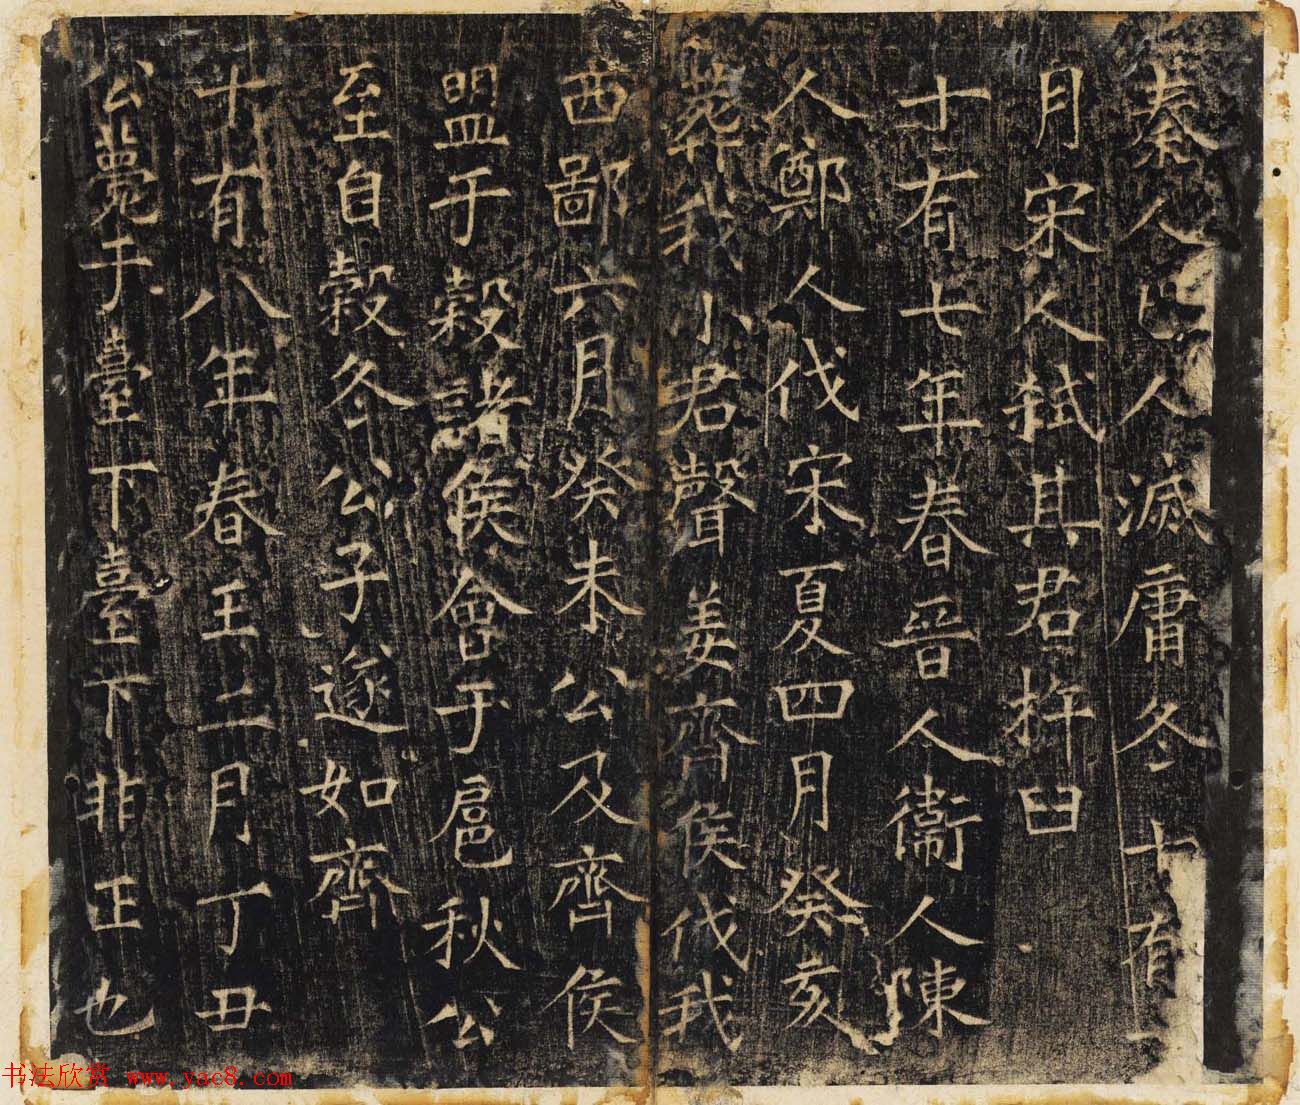 秦人巴人滅庸冬十有一
月宋人弑其君杵臼
十有七年春晉人衞人陳
人鄭人伐宋夏四月癸亥
葬我小君聲姜齊侯伐我
西鄙六月癸未公及齊侯
盟于穀諸侯會于扈秋公
至自穀冬公子遂如齊
十有八年春王二月丁丑
公薨于臺下臺下非正也
书法欣赏 www.yac8.com